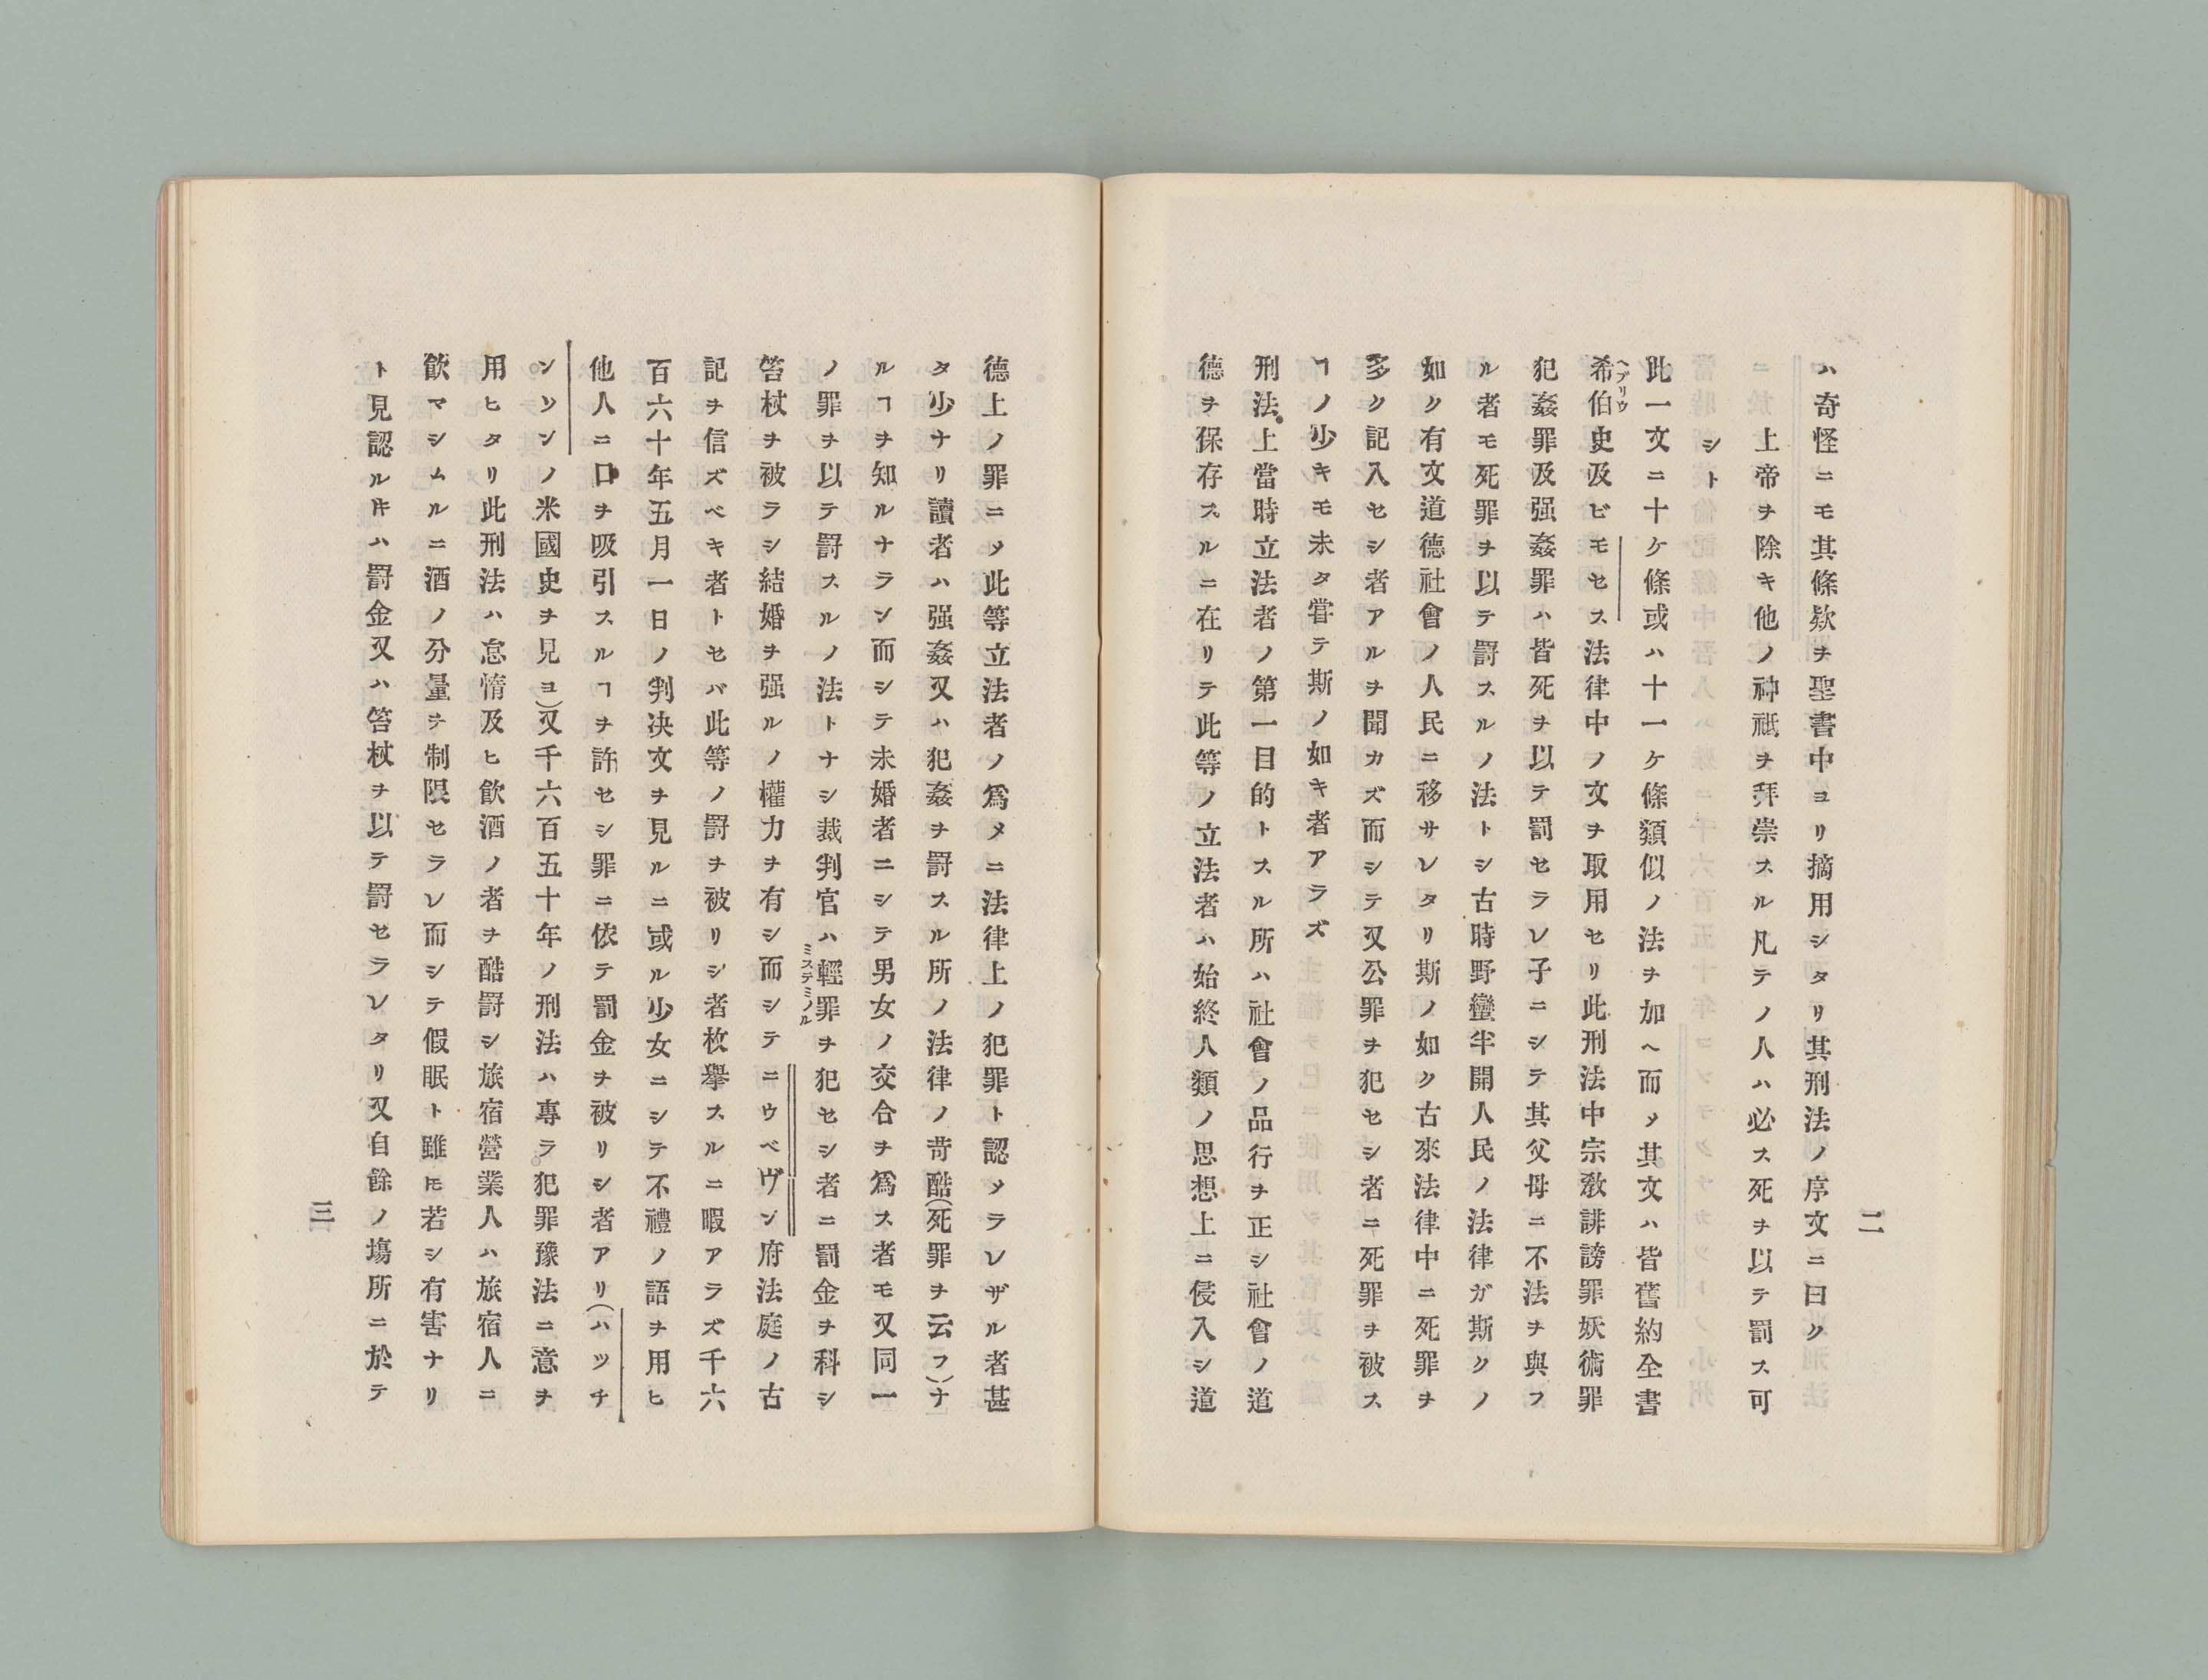 二
ハ奇怪ニモ其條欵ヲ聖書中ヨリ摘用シタリ其刑法ノ序文ニ曰ク
上帝ヲ除キ他ノ神祇ヲ拜崇スル凡テノ人ハ必ス死ヲ以テ罰ス可
シト
此一文ニ十ケ條或ハ十一ケ條類似ノ法ヲ加ヘ而メ其文ハ皆舊約全書
希伯史及ビモセス法律中ノ文ヲ取用セリ此刑法中宗敎誹謗罪妖術罪
ヘブリウ
犯姦罪及强姦罪ハ皆死ヲ以テ罰セラレ子ニシテ其父母ニ不法ヲ與フ
ル者モ死罪ヲ以テ罰スルノ法トシ古時野蠻半開人民ノ法律ガ斯クノ
如ク有文道德社會ノ人民ニ移サレタリ斯ノ如ク古來法律中ニ死罪ヲ
多ク記入セシ者アルヲ聞カズ而シテ又公罪ヲ犯セシ者ニ死罪ヲ被ス
ヿノ少キモ未タ甞テ斯ノ如キ者アラズ
刑法上當時立法者ノ第一目的トスル所ハ社會ノ品行ヲ正シ社會ノ道
德ヲ保存スルニ在リテ此等ノ立法者ハ始終人類ノ思想上ニ侵入シ道
德上ノ罪ニメ此等立法者ノ爲メニ法律上ノ犯罪ト認メラレザル者甚
タ少ナリ讀者ハ强姦又ハ犯姦ヲ罰スル所ノ法律ノ苛酷(死罪ヲ云フ)ナ
ルヿヲ知ルナラン而シテ未婚者ニシテ男女ノ交合ヲ爲ス者モ又同一
ノ罪ヲ以テ罰スルノ法トナシ裁判官ハ輕罪ヲ犯セシ者ニ罰金ヲ科シ
ミステミノル
笞杖ヲ被ラシ結婚ヲ强ルノ權力ヲ有シ而シテニウベヴン府法庭ノ古
記ヲ信ズベキ者トセバ此等ノ罰ヲ被リシ者枚擧スルニ暇アラズ千六
百六十年五月一日ノ判决文ヲ見ルニ或ル少女ニシテ不禮ノ語ヲ用ヒ
他人ニ口ヲ吸引スルヿヲ許セシ罪ニ依テ罰金ヲ被リシ者アリ(ハツチ
ンソンノ米國史ヲ見ヨ)又千六百五十年ノ刑法ハ專ラ犯罪豫法ニ意ヲ
用ヒタリ此刑法ハ怠惰及ヒ飮酒ノ者ヲ酷罰シ旅宿營業人ハ旅宿人ニ
飮マシムルニ酒ノ分量ヲ制限セラレ而シテ假眠ト雖𪜈若シ有害ナリ
ト見認ル𪜈ハ罰金又ハ笞杖ヲ以テ罰セラレタリ又自餘ノ塲所ニ於テ
三